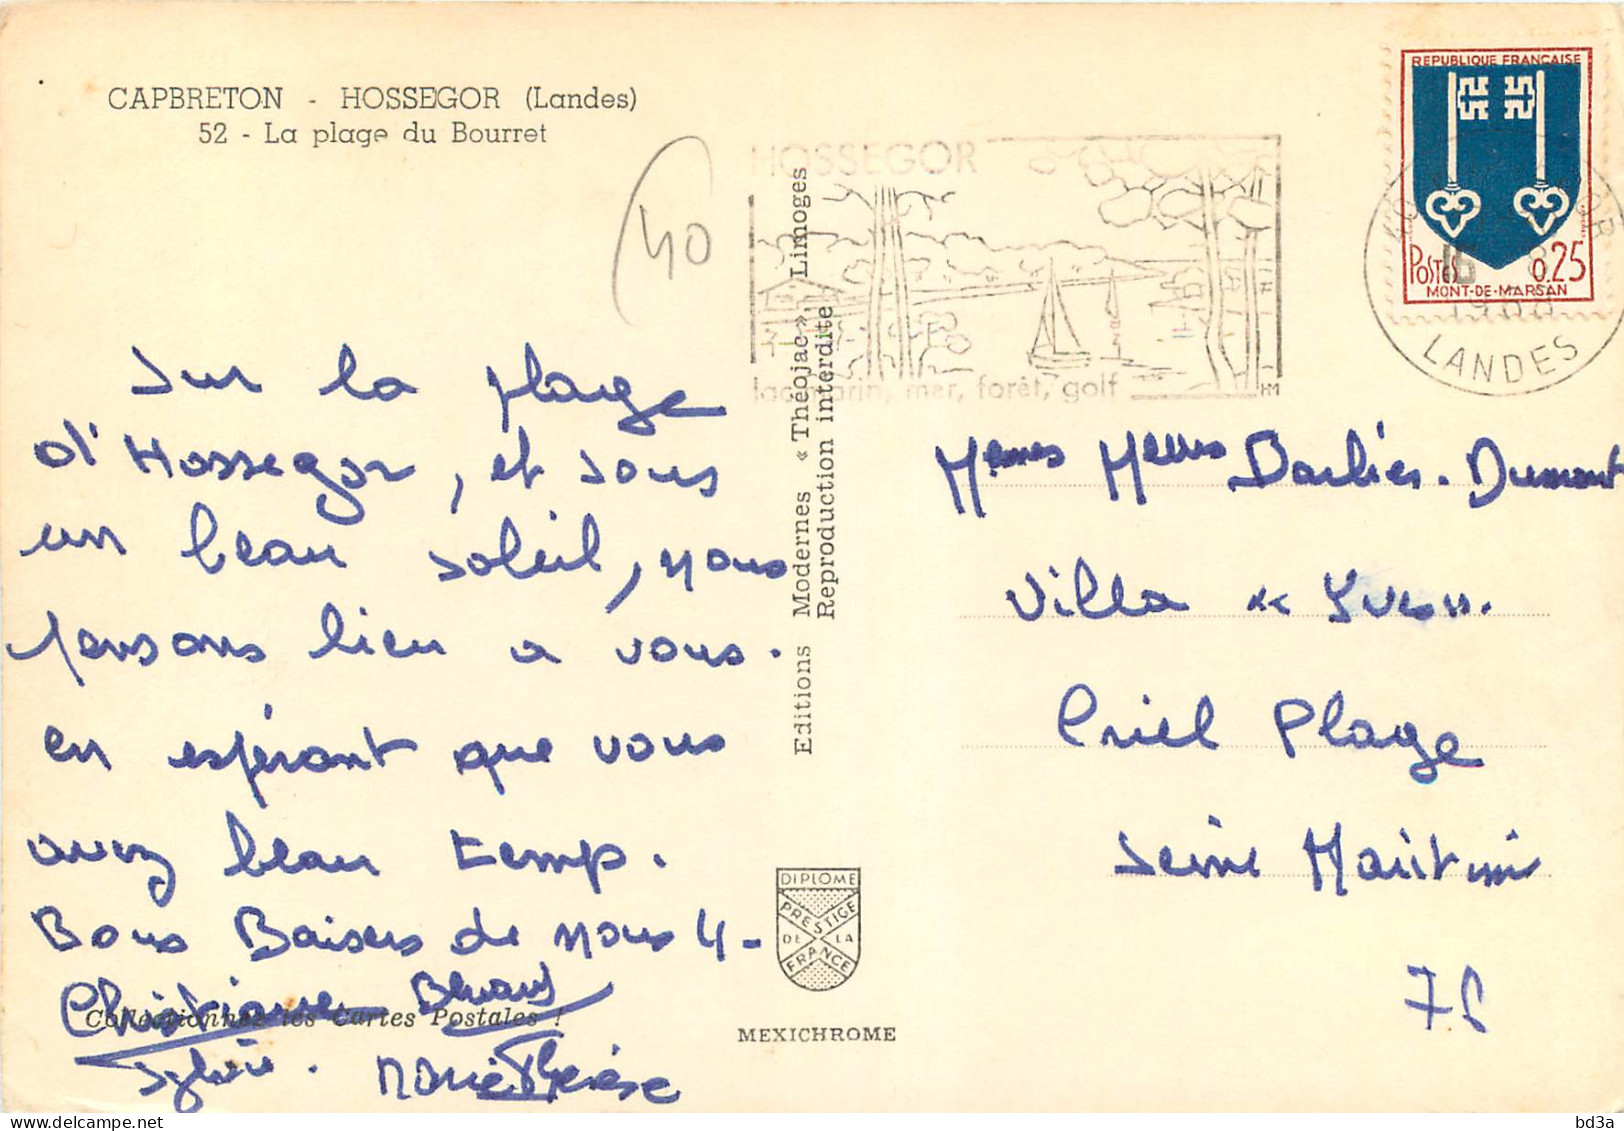 CAPBRETON - HOSSEGOR (Landes)
52 - La plage du Bourret
40
HOSSEGOR
lac marin, mer, forêt, golf
HM
REPUBLIQUE FRANÇAISE
POSTES 0,25
MONT-DE-MARSAN
LANDES
Sur la plage
d'Hossegor, et sous
un beau soleil, nous
pensons bien a vous.
en espérant que vous
avez beau temps.
Bons Baisers de nous 4 -
Christiane
Collectionnez les Cartes Postales !
Sylvie. Marie Thérèse
Editions Modernes « Théojac », Limoges
Reproduction interdite
DIPLOME
PRESTIGE
DE LA
FRANCE
MEXICHROME
Memes Melles Darliès - Dumont
Villa « Yvon ».
Criel Plage
Seine Maritime
76
bd3a